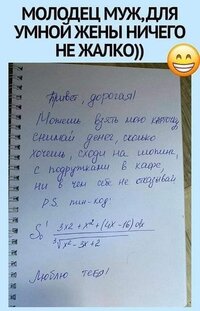 МОЛОДЕЦ МУЖ,ДЛЯ
УМНОЙ ЖЕНЫ НИЧЕГО
НЕ ЖАЛКО))
Привет, дорогая!
Можешь взять мою карточку,
снимай денег, сколько
хочешь, сходи на шопинг,
с подружками в кафе,
ни в чём себе не отказывай
P.S. пин-код:
∫₀¹ (3x2 + x² + (4x - 16) dx
∛x² - 3x + 2
Люблю тебя!